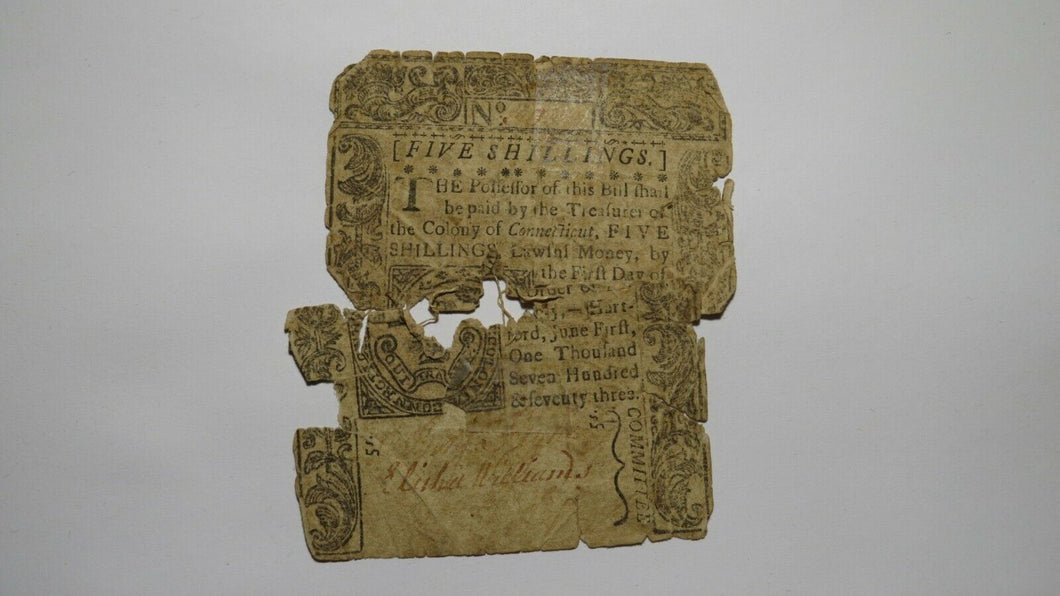 No.
[FIVE SHILLINGS.]
THE Poſſeſſor of this Bill ſhall
be paid by the Treaſurer of
the Colony of Connecticut, FIVE
SHILLINGS Lawful Money, by
the Firſt Day of
Order of
Hart-
ford, June Firſt,
One Thouſand
Seven Hundred
& ſeventy three.
COLON
CONN
OUT
TRA
5s.
5s.
COMMITTEE
Elisha Williams